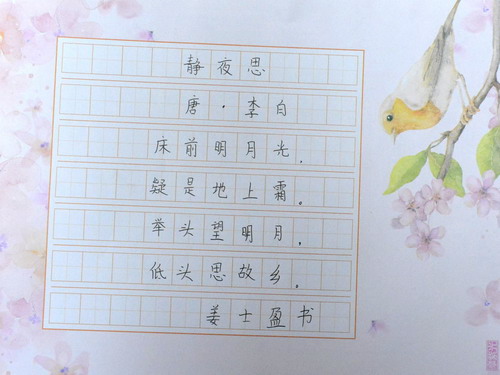 静夜思
唐·李白
床前明月光.
疑是地上霜。
举头望明月.
低头思故乡。
姜士盈书